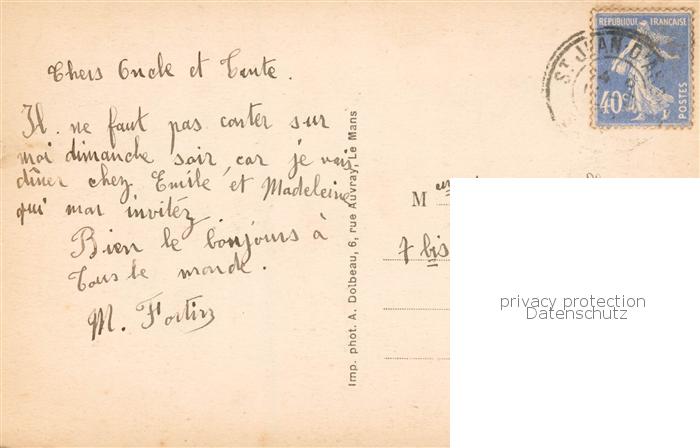 Chers Oncle et Tante.
Il ne faut pas conter sur
moi dimanche soir, car je vais
dîner chez Emile et Madeleine
qui mon invitéz
Bien le bonjours à
Tous le monde.
M. Fortin
Imp. phot. A. Dolbeau, 6, rue Auvray, Le Mans
REPUBLIQUE FRANÇAISE
40c
POSTES
ST JEAN D'A
M
7 bis
privacy protection
Datenschutz